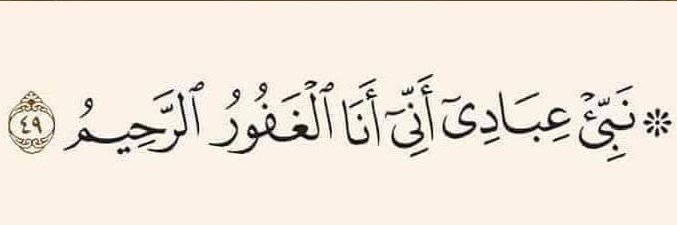 ۞ نَبِّئۡ عِبَادِيٓ أَنِّيٓ أَنَا ٱلۡغَفُورُ ٱلرَّحِيمُ ٤٩